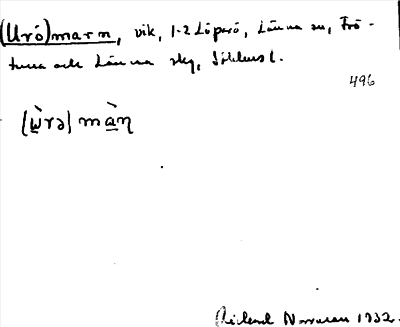 (Urö)marn, vik, 1-2 Löparö, Länna sn, Frö-
tuna och Länna skg, Sthlms l.
496
(ẁrə) màn̡
Rickard Norrman 1932.